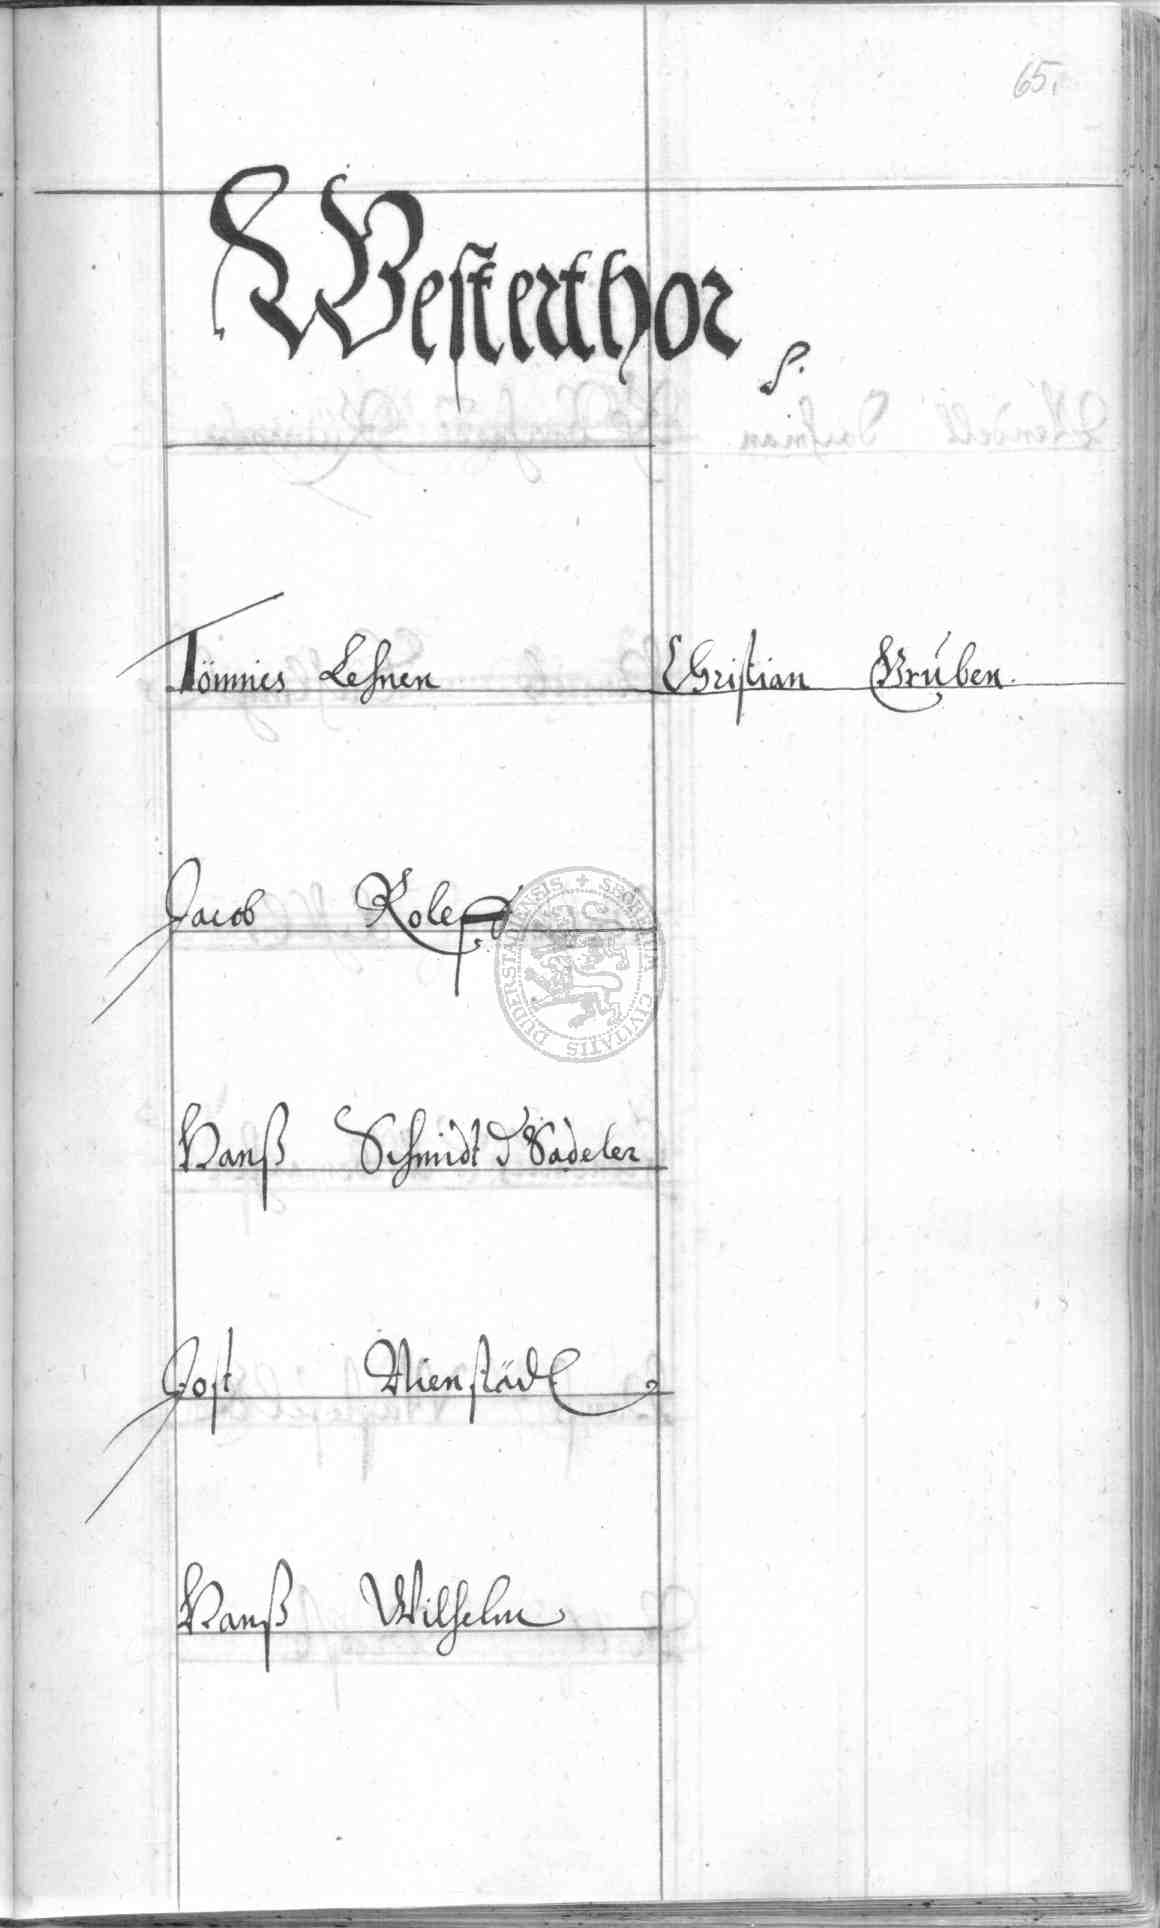 65.
Westerthor
S.
Tönnies Lehnen Christian Gruben.
Jacob
Hanß Schmidt d Sadeler
Jost Nienstädt
Hanß Wilhelm
SIGILLUM CIVITATIS DUDERSTADENSIS